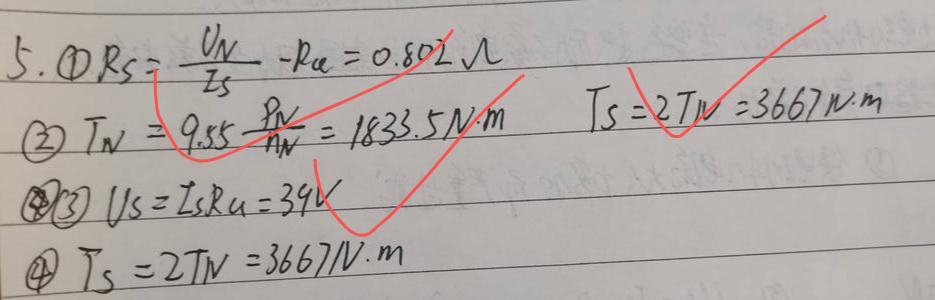 5. ① Rs = UN/Is - Ra = 0.802 Ω
② TN = 9.55 PN/nN = 1833.5 N·m Ts = 2TN = 3667 N·m
③ Us = IsRa = 39V
④ Ts = 2TN = 3667 N·m